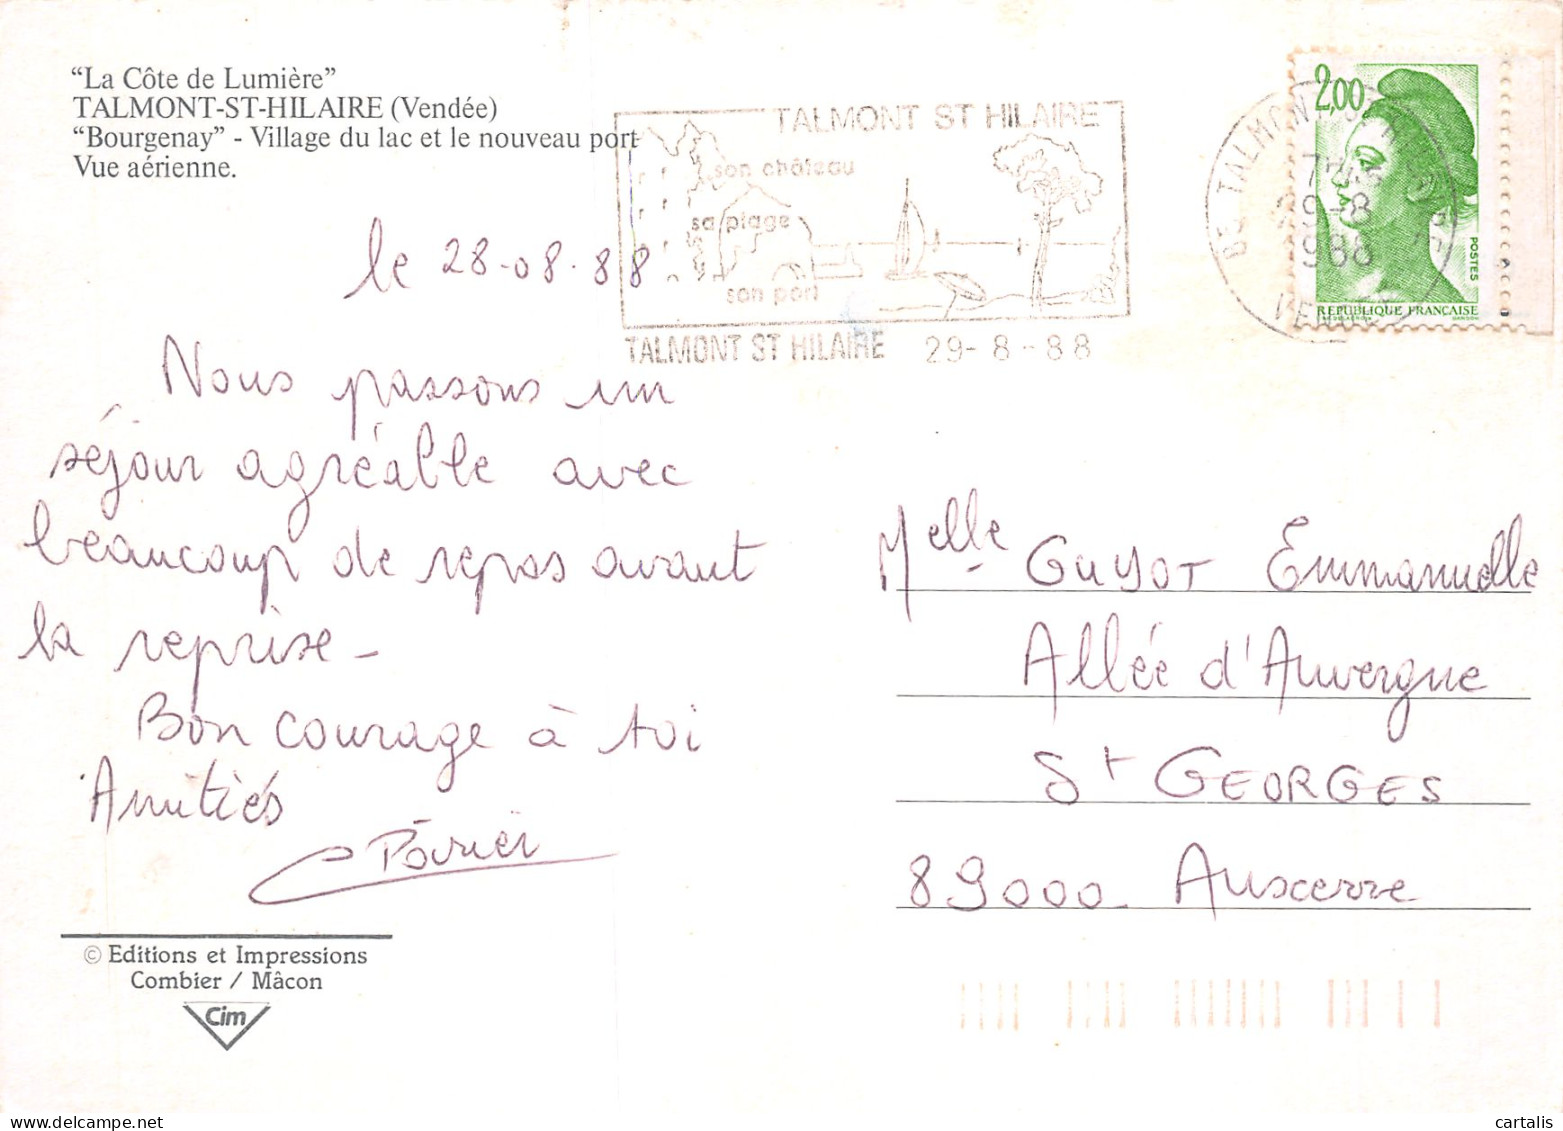 “La Côte de Lumière”
TALMONT-ST-HILAIRE (Vendée)
“Bourgenay” - Village du lac et le nouveau port
Vue aérienne.
TALMONT ST HILAIRE
son château
sa plage
son port
TALMONT ST HILAIRE 29-8-88
2,00
POSTES
REPUBLIQUE FRANÇAISE
le 28-08-88
Nous passons un
séjour agréable avec
beaucoup de repos avant
la reprise-
Bon courage à toi
Amitiés
Melle Guyot Emmanuelle
Allée d'Auvergne
St GEORGES
89000 - Auxerre
© Editions et Impressions
Combier / Mâcon
Cim
cartalis